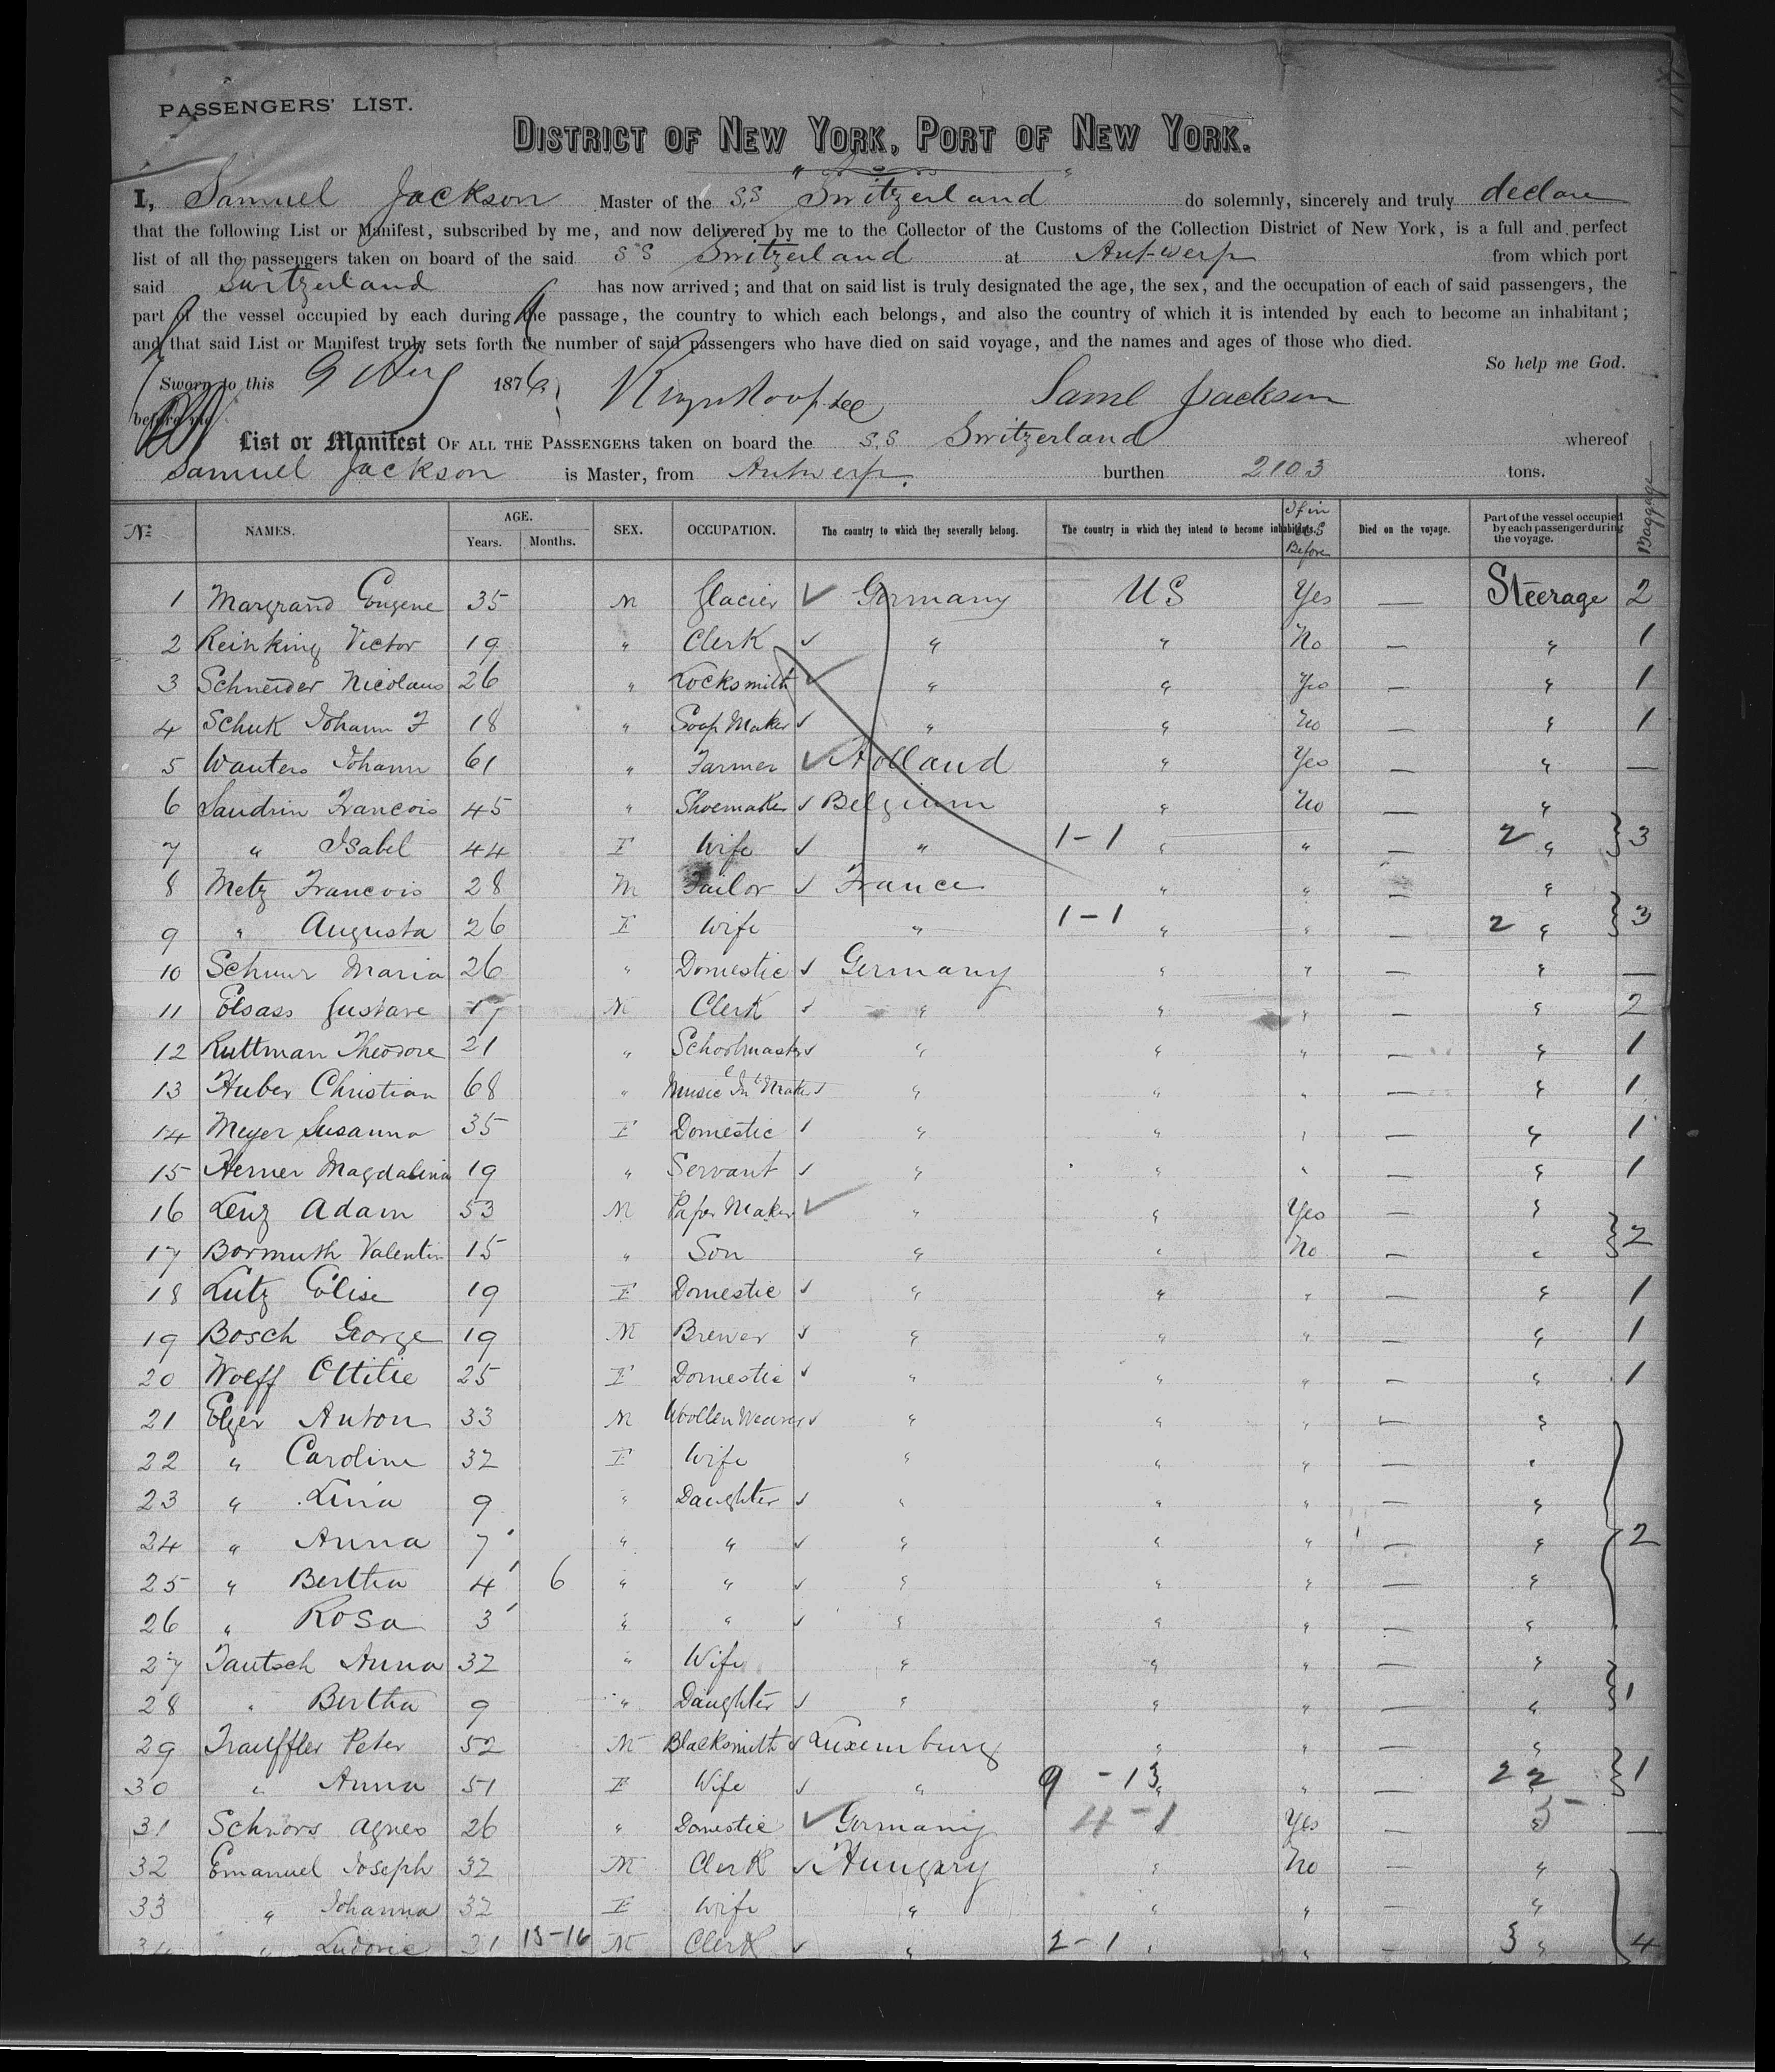 PASSENGERS' LIST.
DISTRICT OF NEW YORK, PORT OF NEW YORK.
I, Samuel Jackson Master of the S.S "Switzerland" do solemnly, sincerely and truly declare
that the following List or Manifest, subscribed by me, and now delivered by me to the Collector of the Customs of the Collection District of New York, is a full and perfect
list of all the passengers taken on board of the said SS Switzerland at Antwerp from which port
said Switzerland has now arrived; and that on said list is truly designated the age, the sex, and the occupation of each of said passengers, the
part of the vessel occupied by each during the passage, the country to which each belongs, and also the country of which it is intended by each to become an inhabitant;
and that said List or Manifest truly sets forth the number of said passengers who have died on said voyage, and the names and ages of those who died.
So help me God.
Sworn to this 9 Aug 1876 Saml Jackson
before me
List or Manifest OF ALL THE PASSENGERS taken on board the S.S Switzerland whereof
Samuel Jackson is Master, from Antwerp. burthen 2103 tons.
No NAMES. AGE. Years. Months. SEX. OCCUPATION. The country to which they severally belong. The country in which they intend to become inhabitants. If in US Before Died on the voyage. Part of the vessel occupied by each passenger during the voyage. Baggage
1 Margrand Eugene 35 M Glacier ✓ Germany US Yes — Steerage 2
2 Reinking Victor 19 " Clerk ✓ " " No — " 1
3 Schneider Nicolaus 26 " Locksmith ✓ " " Yes — " 1
4 Schuk Johann F 18 " Soap Maker ✓ " " No — " 1
5 Wauters Johann 61 " Farmer ✓ Holland " Yes — " —
6 Saudrin Francois 45 " Shoemaker ✓ Belgium " No — "
7 " Isabel 44 F Wife ✓ " 1-1 " " — 2 " } 3
8 Metz Francois 28 M Tailor ✓ France " " — "
9 " Augusta 26 F Wife " 1-1 " " — 2 " } 3
10 Schuur Maria 26 " Domestic ✓ Germany " " — " —
11 Elsass Gustave 17 M Clerk ✓ " " " — " 2
12 Ruttman Theodore 21 " Schoolmaster ✓ " " " — " 1
13 Huber Christian 68 " Music In Maker ✓ " " " — " 1
14 Meyer Susanna 35 F Domestic ✓ " " " — " 1
15 Herner Magdalena 19 " Servant ✓ " " " — " 1
16 Lenz Adam 53 M Paper Maker ✓ " " Yes — "
17 Bormuth Valentin 15 " Son " " No — " } 2
18 Lutz Elise 19 F Domestic ✓ " " " — " 1
19 Bosch George 19 M Brewer ✓ " " " — " 1
20 Wolff Ottilie 25 F Domestic ✓ " " " — " 1
21 Elzer Anton 33 M Woollen Weaver ✓ " " " — "
22 " Caroline 32 F Wife " " " — "
23 " Lina 9 " Daughter ✓ " " " — "
24 " Anna 7 " " ✓ " " " — " } 2
25 " Bertha 4 6 " " ✓ " " " — "
26 " Rosa 3 " " ✓ " " " — "
27 Tautsch Anna 32 " Wife " " " — "
28 " Bertha 9 " Daughter ✓ " " " — " } 1
29 Trauffler Peter 52 M Blacksmith ✓ Luxemburg " " — "
30 " Anna 51 F Wife ✓ " 9 - 13 " " — 22 } 1
31 Schwors Agnes 26 " Domestic ✓ Germany 4-1 Yes — 5 —
32 Emanuel Joseph 32 M Clerk ✓ Hungary " No — "
33 " Johanna 32 F Wife " " " — "
34 " Ludovic 21 13-16 M Clerk ✓ " 2-1 " " — 3 " 4